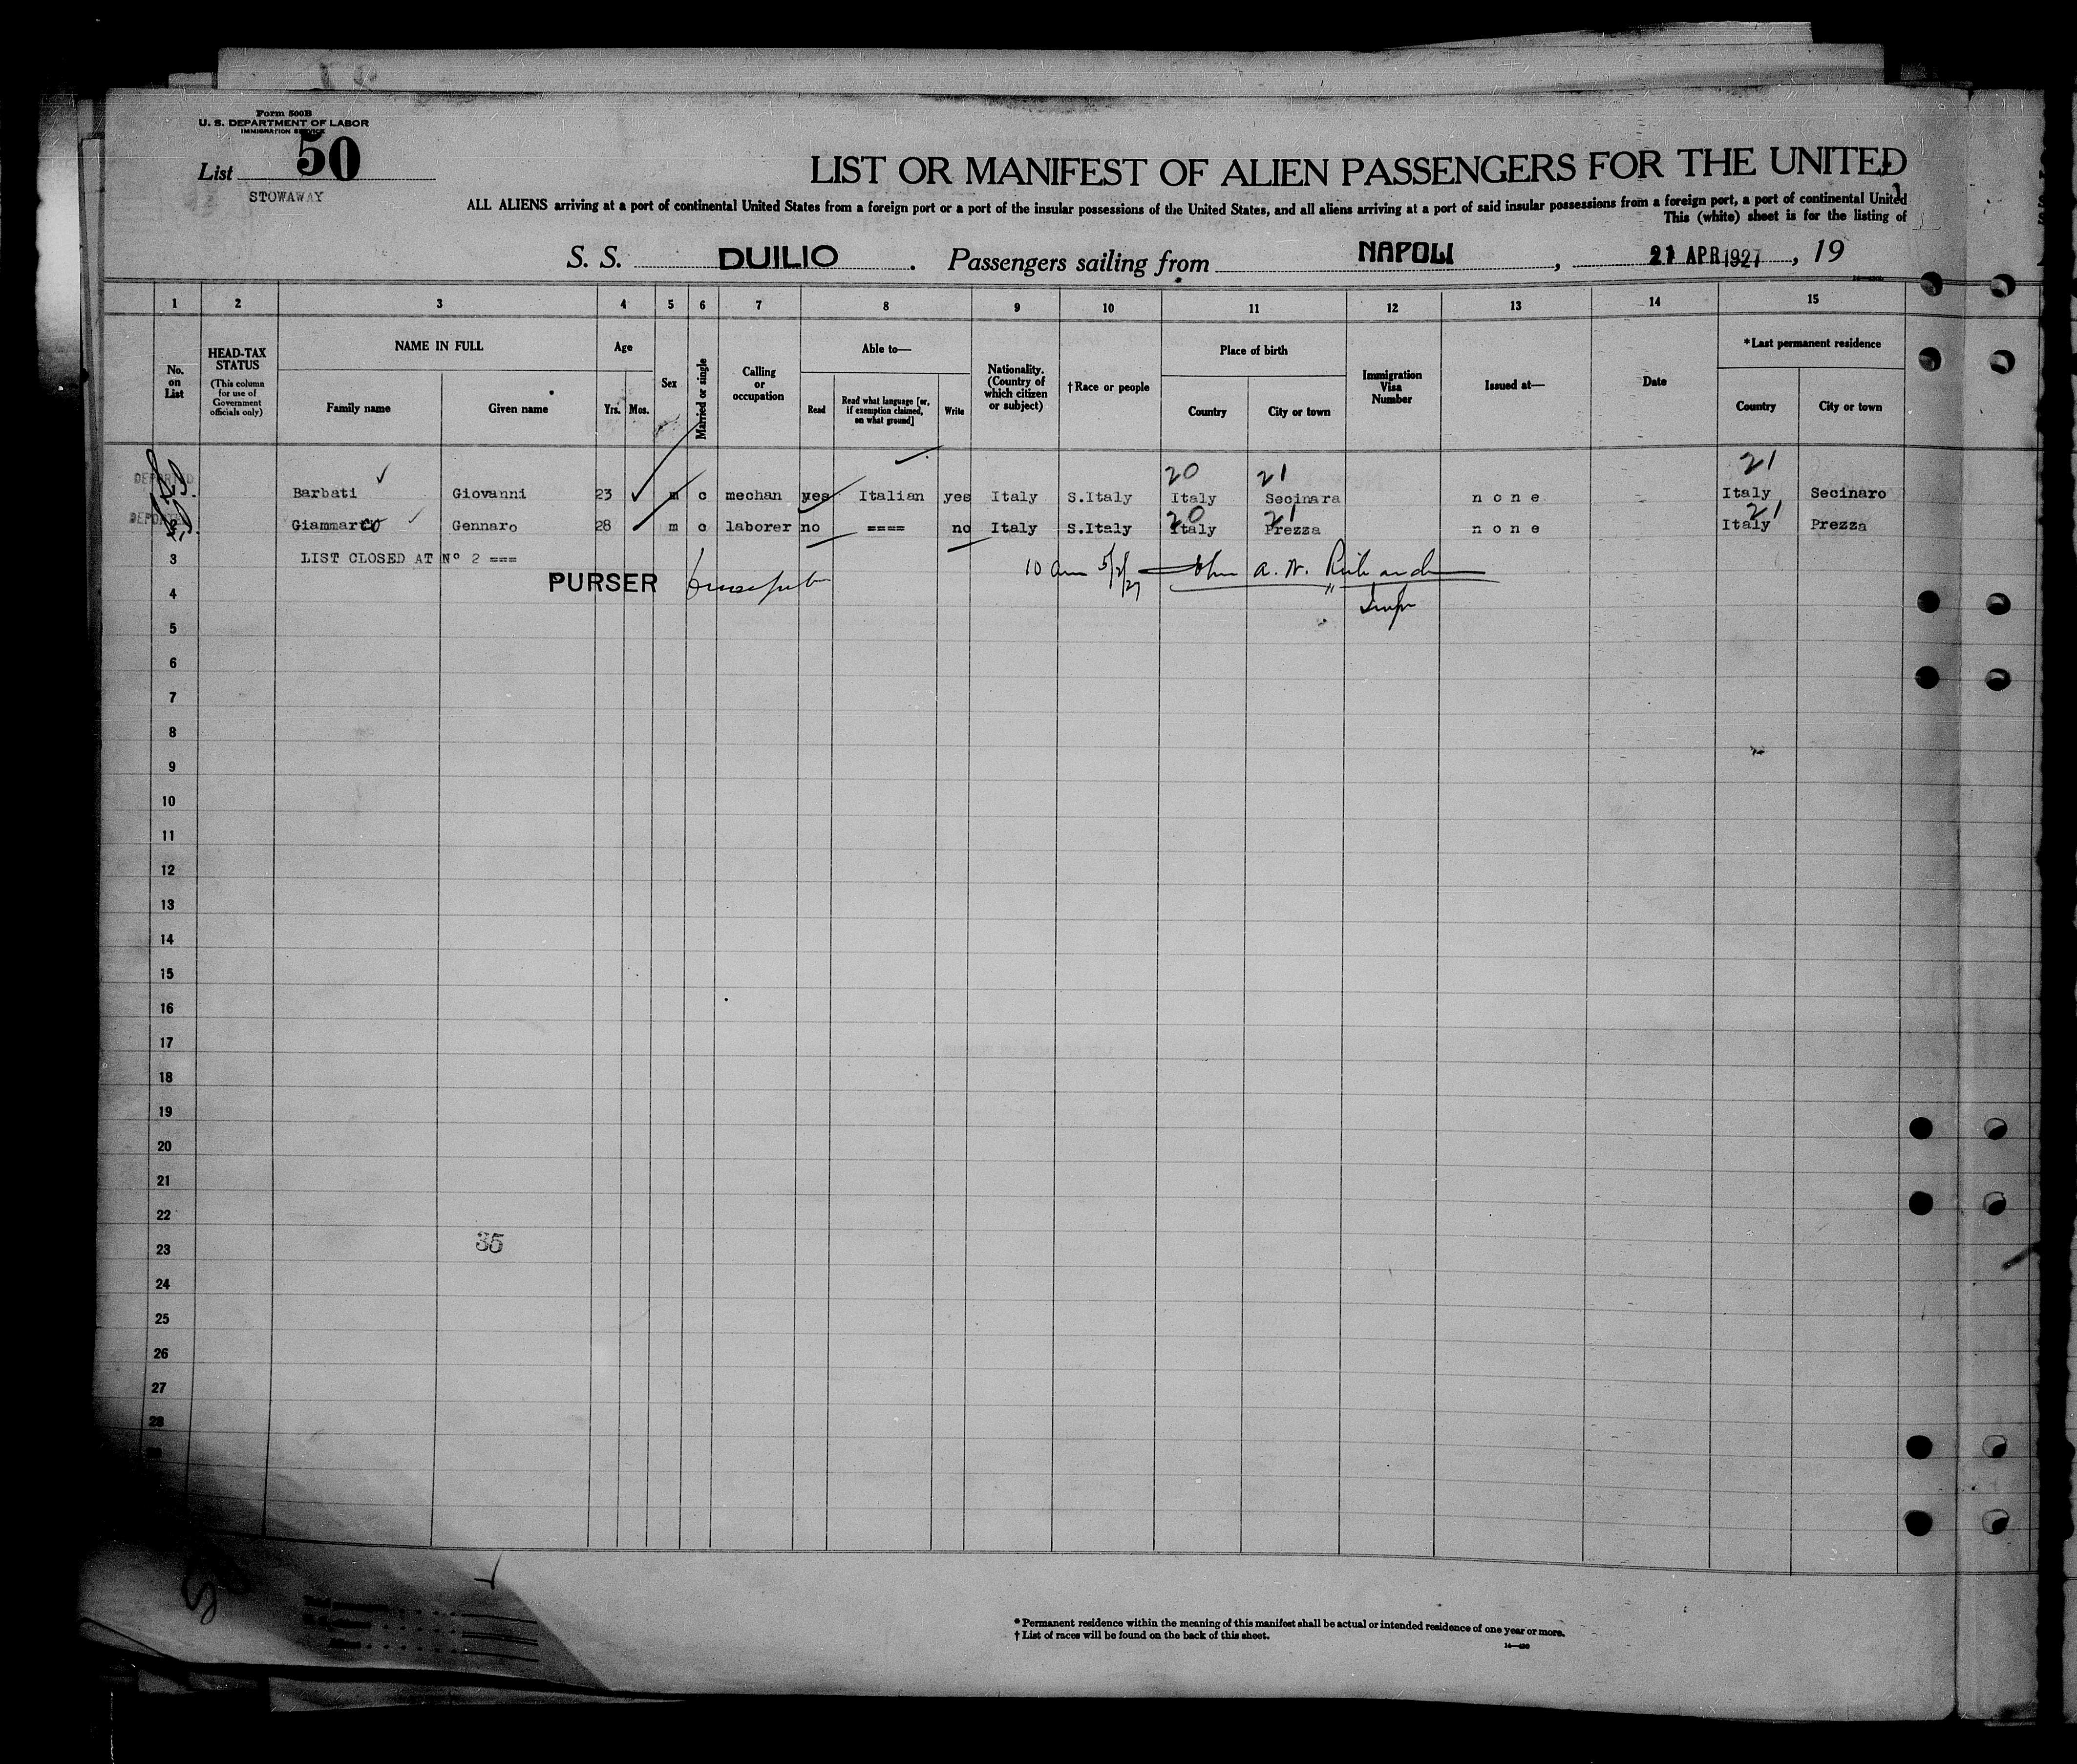 Form 500B
U. S. DEPARTMENT OF LABOR
IMMIGRATION SERVICE
List 50
STOWAWAY
LIST OR MANIFEST OF ALIEN PASSENGERS FOR THE UNITED
ALL ALIENS arriving at a port of continental United States from a foreign port or a port of the insular possessions of the United States, and all aliens arriving at a port of said insular possessions from a foreign port, a port of continental United
This (white) sheet is for the listing of
S. S. DUILIO . Passengers sailing from NAPOLI , 21 APR 1927 , 19
1 2 3 4 5 6 7 8 9 10 11 12 13 14 15
No. on List
HEAD-TAX STATUS (This column for use of Government officials only)
NAME IN FULL
Family name Given name
Age
Yrs. Mos.
Sex
Married or single
Calling or occupation
Able to—
Read Read what language [or, if exemption claimed, on what ground] Write
Nationality. (Country of which citizen or subject)
†Race or people
Place of birth
Country City or town
Immigration Visa Number
Issued at—
Date
*Last permanent residence
Country City or town
20 21 21
DEPORTED Barbati Giovanni 23 m c mechan yes Italian yes Italy S.Italy Italy Secinara none Italy Secinaro
20 21 21
Giammarco Gennaro 28 m c laborer no ==== no Italy S.Italy Italy Prezza none Italy Prezza
3 LIST CLOSED AT Nº 2 ===
PURSER
10 am 5/2/27 John A. W. Richards
4
5
6
7
8
9
10
11
12
13
14
15
16
17
18
19
20
21
22
23
35
24
25
26
27
28
* Permanent residence within the meaning of this manifest shall be actual or intended residence of one year or more.
† List of races will be found on the back of this sheet.